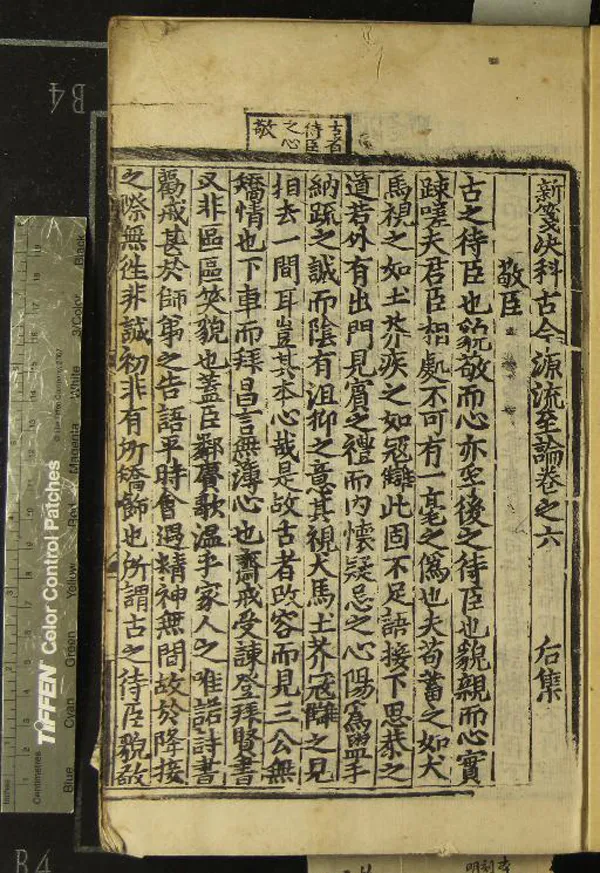 新箋決科古今源流至論卷之六 后集
敬臣
古之待臣也貌敬而心亦至後之待臣也貌親而心實
踈嗟夫君臣相處不可有一毫之僞也夫苟蓄之如犬
馬視之如土芥疾之如冦讎此固不足語接下思恭之
道若外有出門見賔之禮而内懷疑忌之心陽爲盥手
納疏之誠而陰有沮抑之意其視犬馬土芥冦讎之見
相去一間耳豈其本心哉是故古者改容而見三公無
矯情也下車而拜昌言無薄心也齋戒受諫登拜賢書
又非區區笑貌也蓋臣鄰賡歌温乎家人之唯諾詩書
勸戒甚於師弟之告語平時會遇精神無間故於降接
之際無往非誠初非有所矯飾也所謂古之待臣貌敬
古者
待臣
之心
敬
B4
TIFFEN Color Control Patches
Blue
Cyan
Green
Yellow
Red
Magenta
White
3/Color
Black
Centimetres
B4